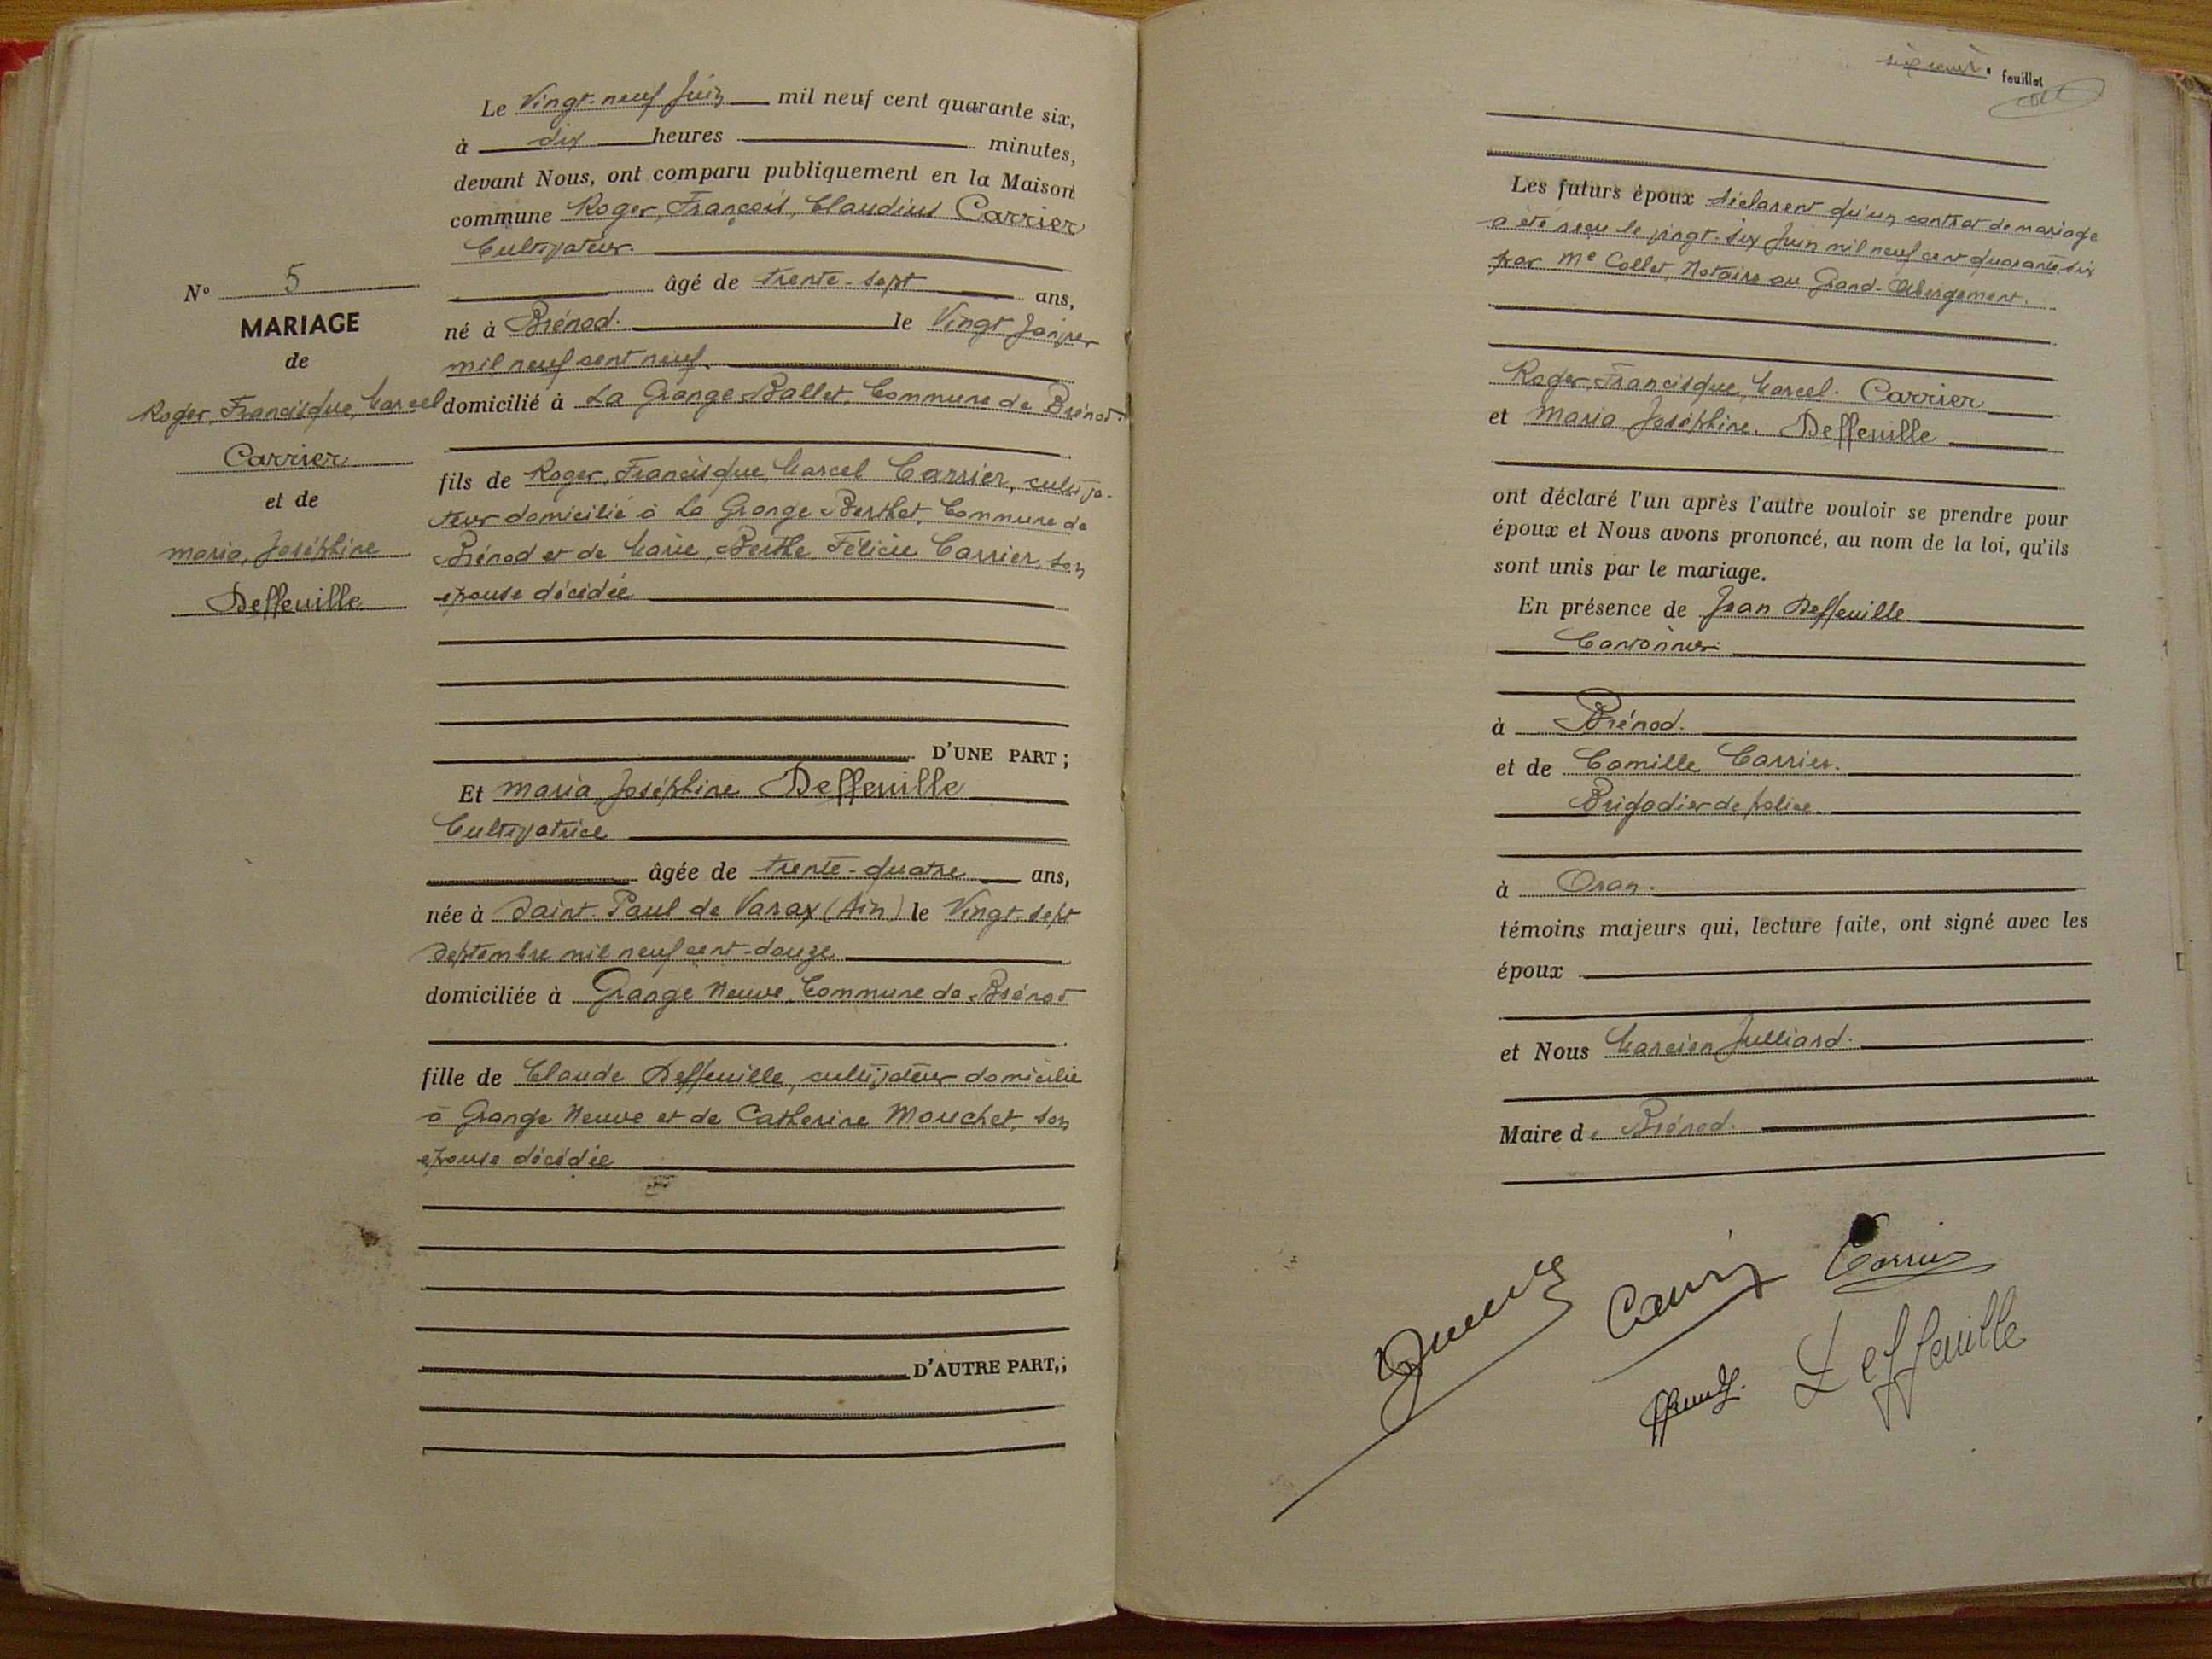 Le Vingt-neuf Juin mil neuf cent quarante six,
à dix heures minutes,
devant Nous, ont comparu publiquement en la Maison
commune Roger, François, Claudius Carrier
Cultivateur
âgé de trente-sept ans,
né à Brénod. le Vingt Janvier
mil neuf cent neuf.
domicilié à La Grange Ballet, Commune de Brénod.
fils de Roger, Francisque, Marcel Carrier, cultiva-
teur domicilié à La Grange Berthet, Commune de
Brénod et de Marie, Berthe Félicie Carrier, son
épouse décédée
D'UNE PART ;
Et Maria Joséphine Deffeuille
Cultivatrice
âgée de trente-quatre ans,
née à Saint-Paul de Varax (Ain) le Vingt-sept
Septembre mil neuf cent-douze
domiciliée à Grange Neuve, Commune de Brénod
fille de Claude Deffeuille, cultivateur domicilié
à Grange Neuve et de Catherine Mouchet, son
épouse décédée
D'AUTRE PART,;
N° 5
MARIAGE
de
Roger, Francisque, Marcel
Carrier
et de
Maria, Joséphine
Deffeuille
feuillet
Les futurs époux déclarent qu'un contrat de mariage
a été reçu le vingt-six Juin mil neuf cent quarante-six
par Me Collet, Notaire au Grand-Abergement.
Roger, Francisque, Marcel. Carrier
et Maria Joséphine. Deffeuille
ont déclaré l'un après l'autre vouloir se prendre pour
époux et Nous avons prononcé, au nom de la loi, qu'ils
sont unis par le mariage.
En présence de Jean Deffeuille
Cantonnier
à Brénod.
et de Camille Carrier.
Brigadier de police.
à Oran.
témoins majeurs qui, lecture faite, ont signé avec les
époux
et Nous Marcien Julliard.
Maire de Brénod.
Carrier
Deffeuille